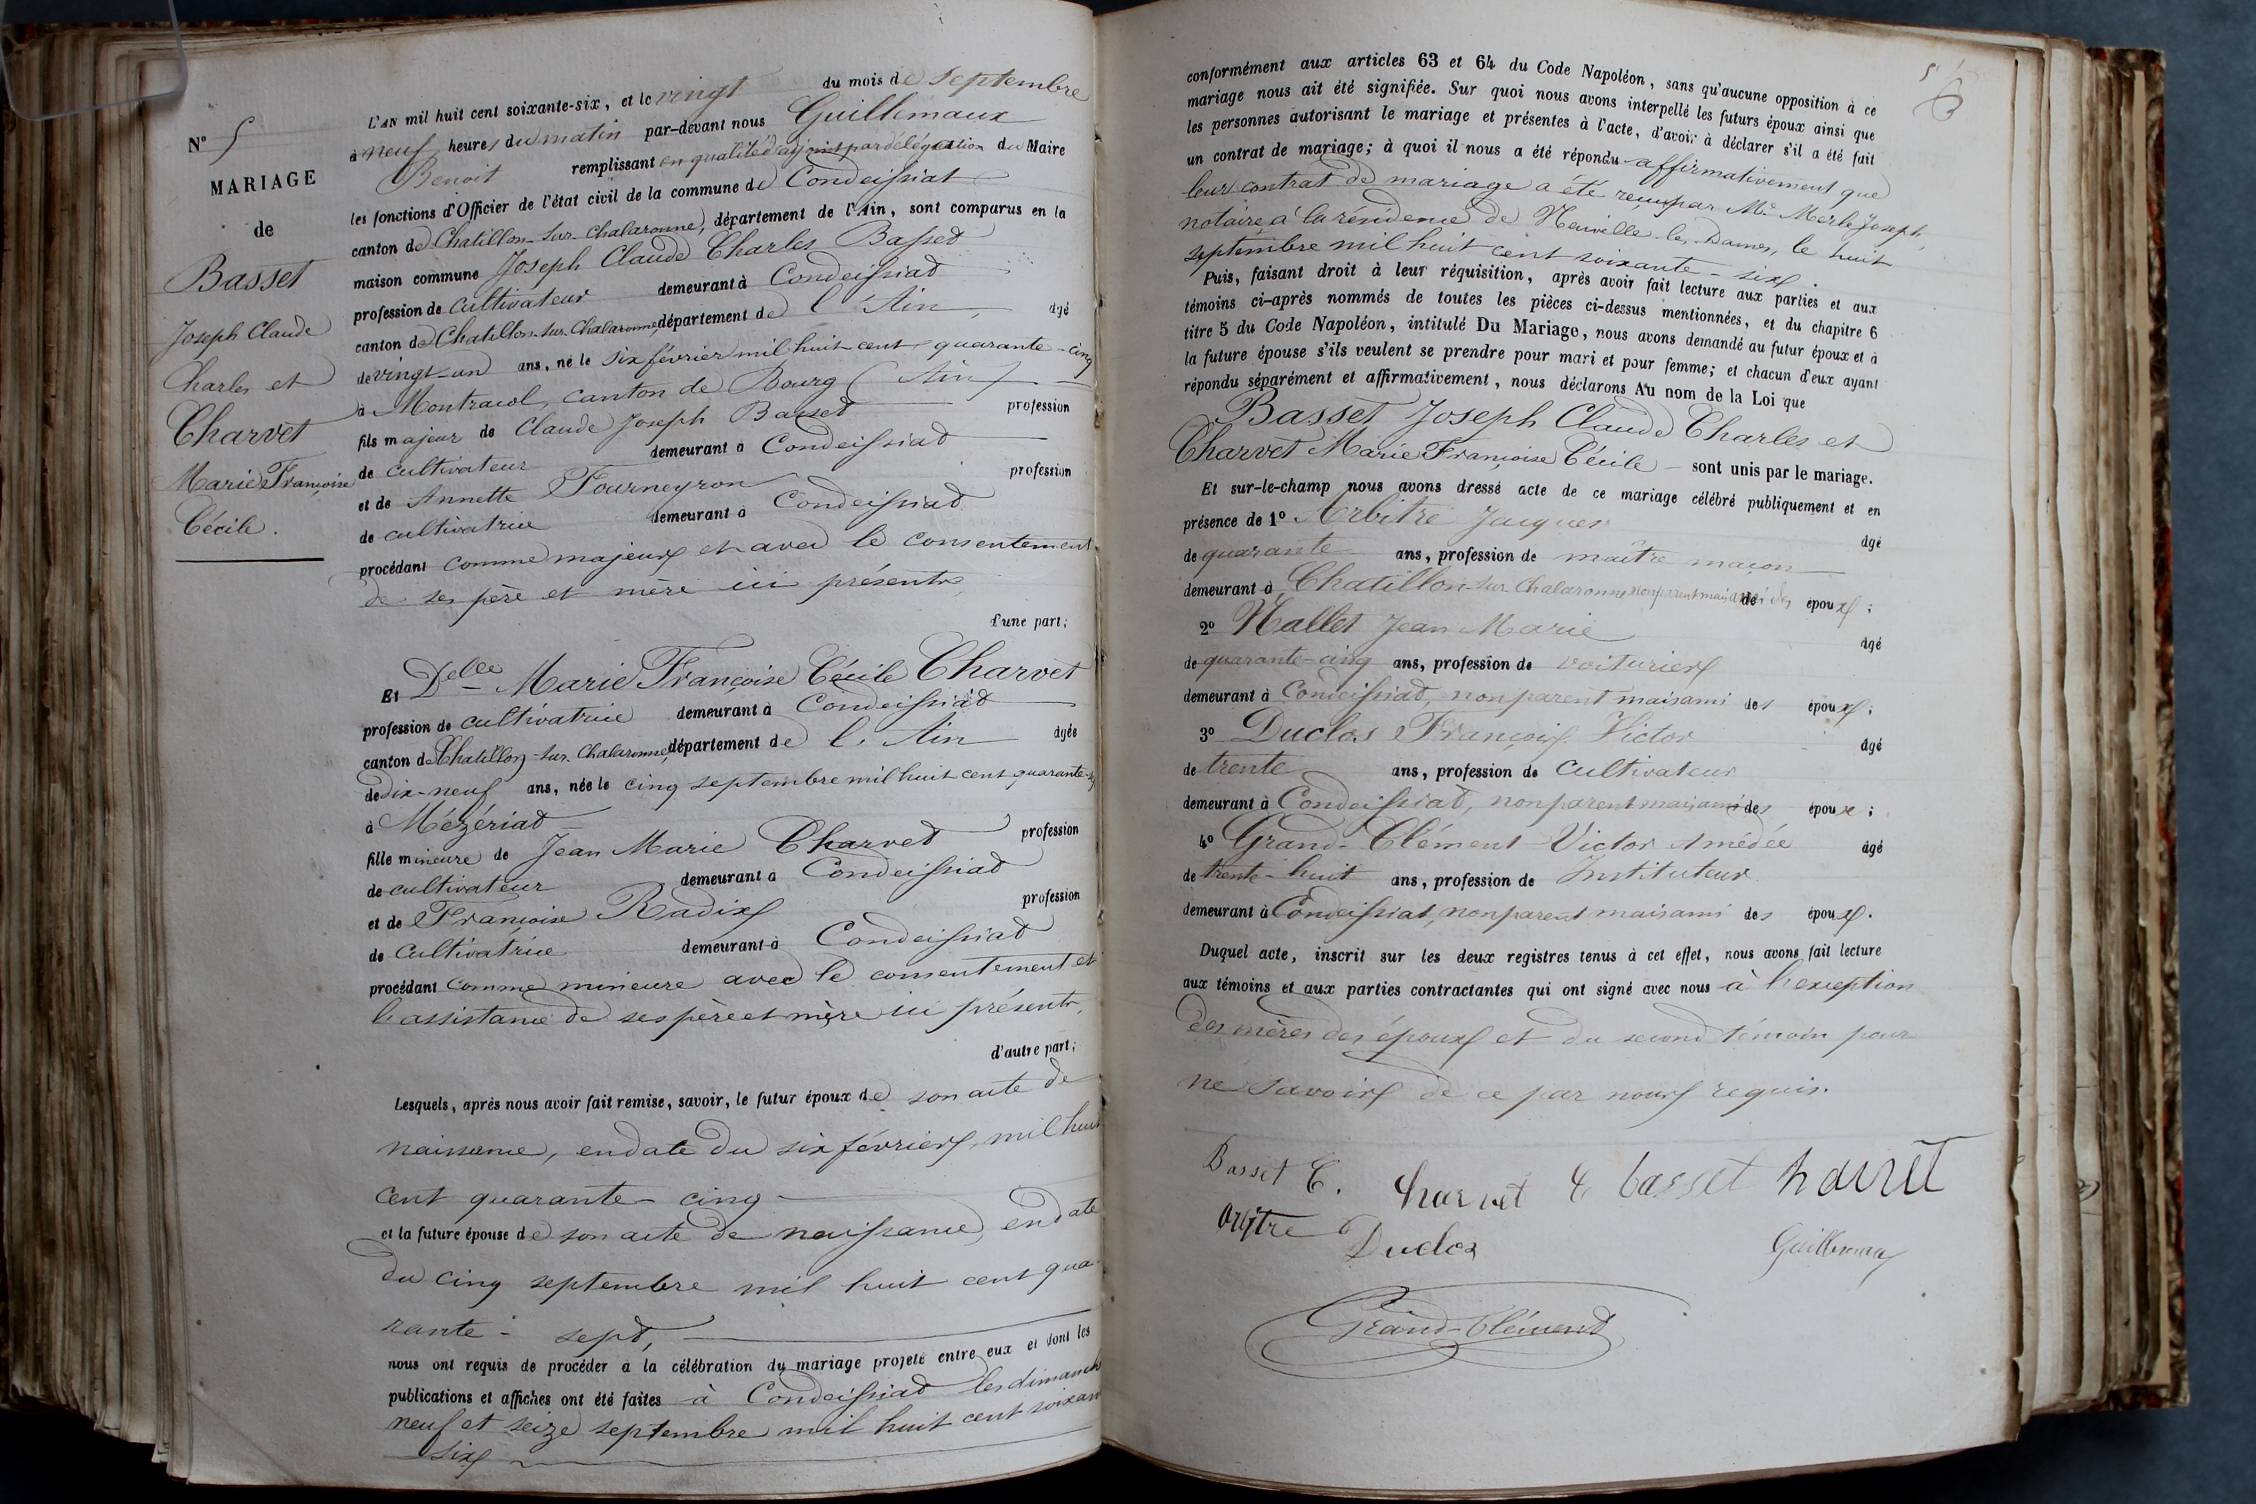 N° 5
MARIAGE
de
Basset
Joseph Claude
Charles et
Charvet
Marie Françoise
Cécile.
L'AN mil huit cent soixante-six, et le vingt du mois de septembre
à neuf heures du matin par-devant nous Guillemaux
Benoit remplissant en qualité d'adjoint par délégation du Maire
les fonctions d'Officier de l'état civil de la commune de Condeissiat
canton de Chatillon-sur-Chalaronne, département de l'Ain, sont comparus en la
maison commune Joseph Claude Charles Basset
profession de cultivateur demeurant à Condeissiat
canton de Chatillon-sur-Chalaronne, département de l'Ain, âgé
de vingt-un ans, né le six février mil huit cent quarante-cinq
à Montracol, canton de Bourg (Ain)
fils majeur de Claude Joseph Basset profession
de cultivateur demeurant à Condeissiat
et de Annette Fourneyron profession
de cultivatrice demeurant à Condeissiat
procédant comme majeur et avec le consentement
de ses père et mère ici présents,
d'une part;
Et Delle Marie Françoise Cécile Charvet
profession de cultivatrice demeurant à Condeissiat
canton de Chatillon-sur-Chalaronne, département de l'Ain âgée
de dix-neuf ans, née le cinq septembre mil huit cent quarante-
à Mézériat
fille mineure de Jean Marie Charvet profession
de cultivateur demeurant à Condeissiat
et de Françoise Radix profession
de cultivatrice demeurant à Condeissiat
procédant comme mineure avec le consentement et
l'assistance de ses père et mère ici présents,
d'autre part;
Lesquels, après nous avoir fait remise, savoir, le futur époux de son acte de
naissance, en date du six février mil huit
cent quarante-cinq
et la future épouse de son acte de naissance, en date
du cinq septembre mil huit cent qua-
rante-sept,
nous ont requis de procéder à la célébration du mariage projeté entre eux et dont les
publications et affiches ont été faites à Condeissiat les dimanches
neuf et seize septembre mil huit cent soixante
six
5
conformément aux articles 63 et 64 du Code Napoléon, sans qu'aucune opposition à ce
mariage nous ait été signifiée. Sur quoi nous avons interpellé les futurs époux ainsi que
les personnes autorisant le mariage et présentes à l'acte, d'avoir à déclarer s'il a été fait
un contrat de mariage; à quoi il nous a été répondu affirmativement que
leur contrat de mariage a été reçu par Me Merle Joseph,
notaire à la résidence de Neuville-les-Dames, le huit
septembre mil huit cent soixante-six.
Puis, faisant droit à leur réquisition, après avoir fait lecture aux parties et aux
témoins ci-après nommés de toutes les pièces ci-dessus mentionnées, et du chapitre 6
titre 5 du Code Napoléon, intitulé Du Mariage, nous avons demandé au futur époux et à
la future épouse s'ils veulent se prendre pour mari et pour femme; et chacun d'eux ayant
répondu séparément et affirmativement, nous déclarons Au nom de la Loi que
Basset Joseph Claude Charles et
Charvet Marie Françoise Cécile sont unis par le mariage.
Et sur-le-champ nous avons dressé acte de ce mariage célébré publiquement et en
présence de 1° Arbitre Jacques âgé
de quarante ans, profession de maître maçon
demeurant à Chatillon-sur-Chalaronne non parent mais ami des époux;
2° Nallet Jean Marie âgé
de quarante-cinq ans, profession de voiturier
demeurant à Condeissiat, non parent mais ami des époux;
3° Duclos François Victor âgé
de trente ans, profession de cultivateur
demeurant à Condeissiat, non parent mais ami des époux;
4° Grand-Clément Victor Amédée âgé
de trente-huit ans, profession de Instituteur
demeurant à Condeissiat, non parent mais ami des époux.
Duquel acte, inscrit sur les deux registres tenus à cet effet, nous avons fait lecture
aux témoins et aux parties contractantes qui ont signé avec nous à l'exception
des mères des époux et du second témoin pour
ne savoir de ce par nous requis.
Basset C. Charvet C basset harvet
Duclos Guillemau
Grand-Clément